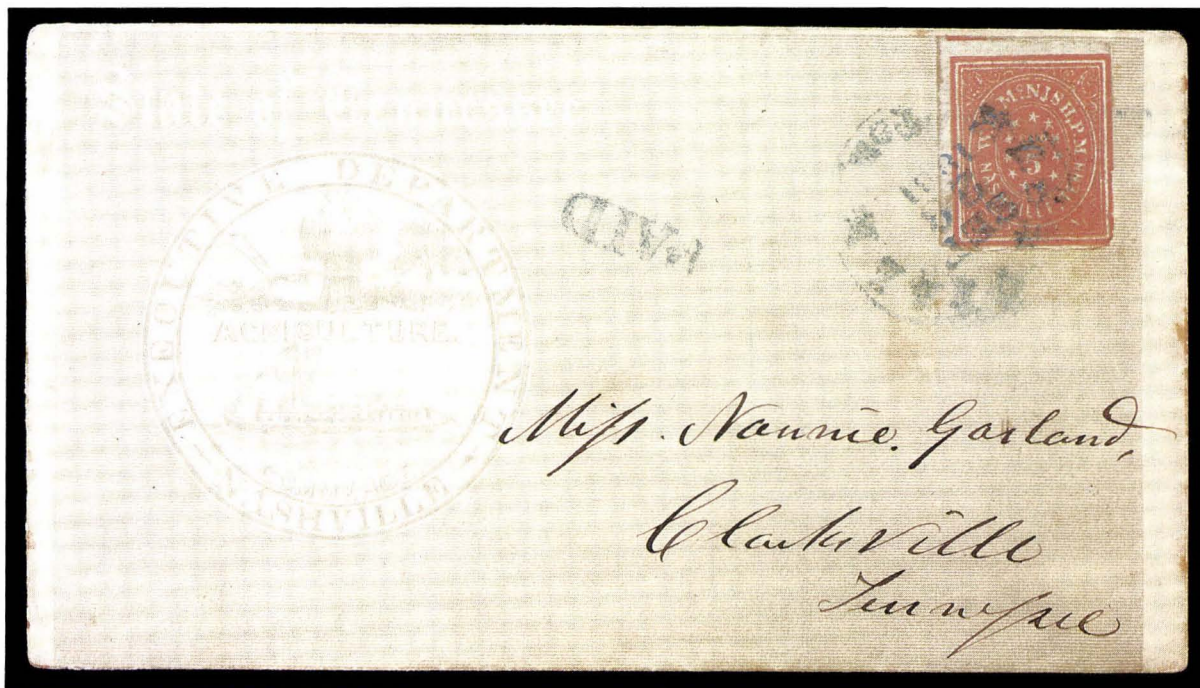 EXECUTIVE DEPARTMENT
AGRICULTURE.
NASHVILLE
PAID
W. D. McNISH, P.M.
5
NASHVILLE, TENN.
Miss. Nannie. Garland,
Clarksville
Tennessee